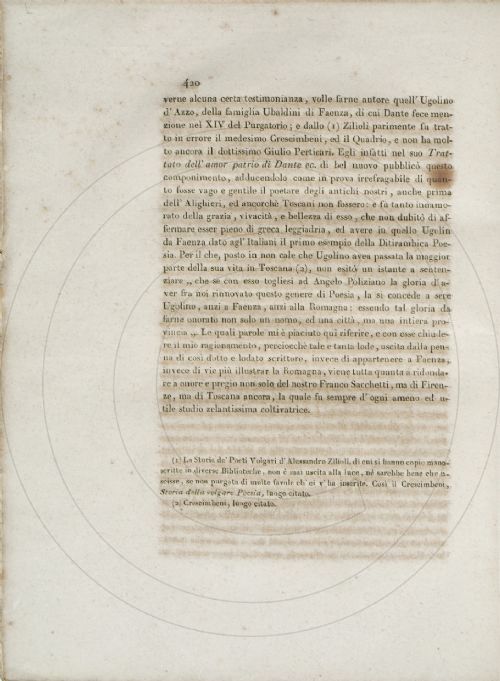 420
verne alcuna certa testimonianza, volle farne autore quell' Ugolino
d'Azzo, della famiglia Ubaldini di Faenza, di cui Dante fece men-
zione nel XIV del Purgatorio; e dallo (1) Zilioli parimente fu trat-
to in errore il medesimo Crescimbeni, ed il Quadrio, e non ha mol-
to ancora il dottissimo Giulio Perticari. Egli infatti nel suo Trat-
tato dell'amor patrio di Dante ec. di bel nuovo pubblicò questo
componimento, adducendolo come in prova irrefragabile di quan-
to fosse vago e gentile il poetare degli antichi nostri, anche prima
dell'Alighieri, ed ancorchè Toscani non fossero: e fù tanto innamo-
rato della grazia, vivacità, e bellezza di esso, che non dubitò di af-
fermare esser pieno di greca leggiadria, ed avere in quello Ugolin
da Faenza dato agl'Italiani il primo esempio della Ditirambica Poe-
sia. Per il che, posto in non cale che Ugolino avea passata la maggior
parte della sua vita in Toscana (2), non esitò un istante a senten-
ziare „ che se con esso togliesi ad Angelo Poliziano la gloria d'a-
ver fra noi rinnovato questo genere di Poesia, la si concede a sere
Ugolino, anzi a Faenza, anzi alla Romagna: essendo tal gloria da
farne onorato non solo un uomo, ed una città, ma una intiera pro-
vincia „. Le quali parole mi è piaciuto quì riferire, e con esse chiude-
re il mio ragionamento, perciocchè tale e tanta lode, uscita dalla pen-
na di così dotto e lodato scrittore, invece di appartenere a Faenza,
invece di vie più illustrar la Romagna, viene tutta quanta a ridonda-
re a onore e pregio non solo del nostro Franco Sacchetti, ma di Firen-
ze, ma di Toscana ancora, la quale fu sempre d'ogni ameno ed u-
tile studio zelantissima coltivatrice.
(1) La Storia de' Poeti Volgari d'Alessandro Zilioli, di cui si hanno copie mano-
scritte in diverse Biblioteche, non è mai uscita alla luce, né sarebbe bene che u-
scisse, se non purgata di molte favole ch' ei v' ha inserite. Così il Crescimbeni,
Storia della volgare Poesia, luogo citato.
(2) Crescimbeni, luogo citato.